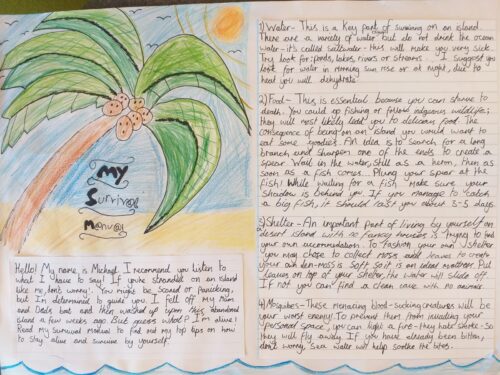 My
Survival
Manual
Hello! My name is Michael. I recommend you listen to
what I have to say! If you're stranded on an island
like me, don't worry! You might be scared or panicking,
but I'm determined to guide you. I fell off my Mum
and Dad's boat and then washed up upon this abandoned
island a few weeks ago. But guess what? I'm alive!
Read my survival manual to find out my top tips on how
to stay alive and survive by yourself.
1) Water - This is a key part of surviving on an island.
There are a variety of water but do not drink the ocean
water - it's called saltwater - this will make you very sick.
Try look for: ponds, lakes, rivers or streams. I suggest you
look for water in morning sun rise or at night, due to
heat you will dehydrate.
2) Food - This is essential because you can starve to
death. You could go fishing or follow indigenous wildlife;
they will most likely lead you to delicious food. The
consequence of being on an island you would want to
eat some goodies. An idea is to search for a long
branch and sharpen one of the ends to create a
spear. Wait in the water, still as a heron, then as
soon as a fish comes. Plung your spear at the
fish! While waiting for a fish make sure your
shadow is behind you. If you managed to catch
a big fish, it should last you about 3-5 days.
3) Shelter - An important part of living by yourself on
an island with no fancy houses is trying to find
your own accommodation. To fashion your own shelter
you may chose to collect moss and leaves to create
your own den - moss is soft so it is an ideal mattress. Put
leaves on top of your shelter, the water will slide off.
If not you can find a clean cave with no animals.
4) Mosquitoes - These menacing blood-sucking creatures will be
your worst enemy! To prevent them from invading your
personal space, you can light a fire - they hate smoke - so
they will fly away. If you have already been bitten,
don't worry, sea water will help soothe the bites.